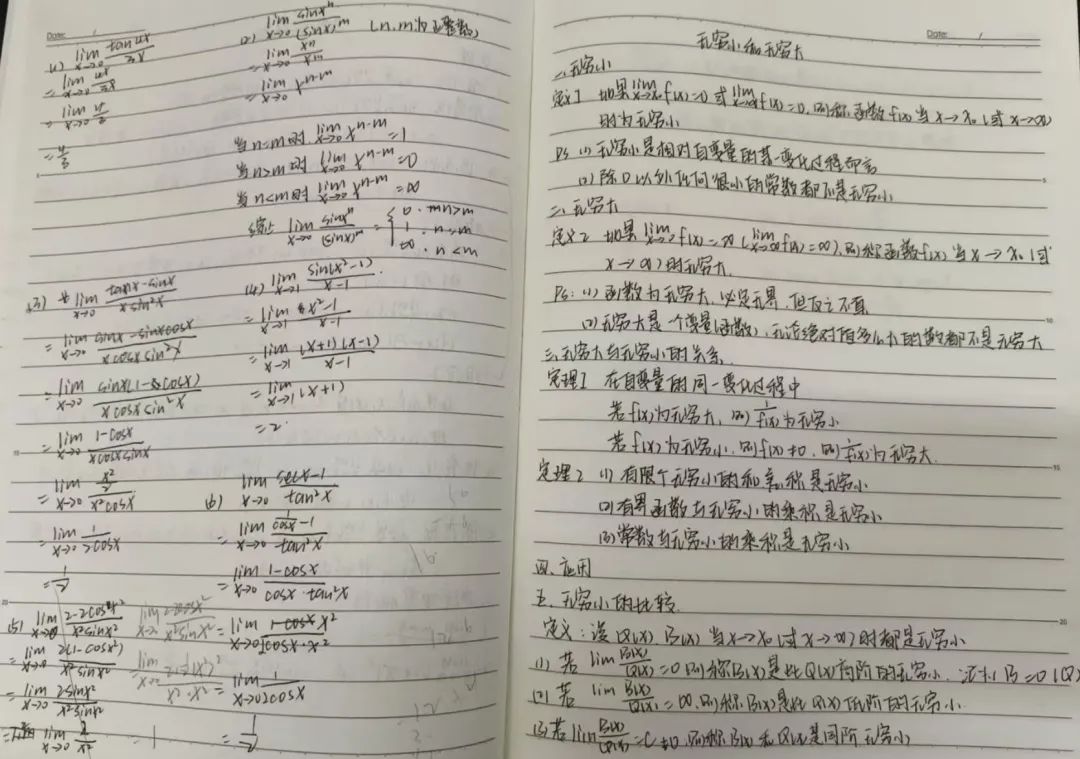 Date: /
(1) lim x→0 tan4x/3x
= lim x→0 4x/3x
= lim x→0 4/3
= 4/3
(2) lim x→0 sinx^n/(sinx)^m (n.m为正整数)
= lim x→0 x^n/x^m
= lim x→0 x^(n-m)
当n=m时 lim x→0 x^(n-m) = 1
当n>m时 lim x→0 x^(n-m) = 0
当n<m时 lim x→0 x^(n-m) = ∞
综上 lim x→0 sinx^n/(sinx)^m = { 0 . n>m
1 . n=m
∞ . n<m
(3) lim x→0 tanx-sinx/xsin²x
= lim x→0 sinx-sinxcosx/xcosxsin²x
= lim x→0 sinx(1-cosx)/xcosxsin²x
= lim x→0 1-cosx/xcosxsinx
= lim x→0 (x²/2)/x²cosx
= lim x→0 1/2cosx
= 1/2
(4) lim x→1 sin(x²-1)/x-1
= lim x→1 x²-1/x-1
= lim x→1 (x+1)(x-1)/x-1
= lim x→1 (x+1)
= 2.
(5) lim x→0 2-2cosx²/x²sinx²
= lim x→0 2(1-cosx²)/x²sinx²
= lim x→0 2sinx²/x²sinx²
= lim x→0 2/x²
= 1
(6) lim x→0 secx-1/tan²x
= lim x→0 (1/cosx -1)/tan²x
= lim x→0 1-cosx/cosx·tan²x
= lim x→0
= lim x→0 1/2cosx
= 1/2
Date: /
无穷小和无穷大
一、无穷小
定义1 如果lim x→x₀ f(x)=0 或 lim x→∞ f(x)=0,则称函数f(x)当x→x₀(或x→∞)
时为无穷小
Ps (1)无穷小是相对自变量的某一变化过程而言
(2)除0以外任何很小的常数都不是无穷小
二、无穷大
定义2 如果lim x→x₀ f(x)=∞ (lim x→∞ f(x)=∞),则称函数f(x)当x→x₀(或
x→∞)时无穷大.
Ps: (1)函数为无穷大,必定无界,但反之不真
(2)无穷大是一个变量(函数),无论绝对值多么大的数都不是无穷大
三、无穷大与无穷小的关系.
定理1 在自变量的同一变化过程中
若f(x)为无穷大,则1/f(x)为无穷小
若f(x)为无穷小,则f(x)≠0,则1/f(x)为无穷大.
定理2 (1)有限个无穷小的和、乘积是无穷小
(2)有界函数与无穷小的乘积是无穷小
(3)常数与无穷小的乘积是无穷小
四、应用
五、无穷小的比较
定义:设α(x),β(x)当x→x₀(或x→∞)时都是无穷小
(1)若 lim β(x)/α(x)=0 则称β(x)是比α(x)高阶的无穷小,记作β=o(α)
(2)若 lim β(x)/α(x)=∞,则称β(x)是比α(x)低阶的无穷小.
(3)若 lim β(x)/α(x)=C≠0,则称β(x)和α(x)是同阶无穷小